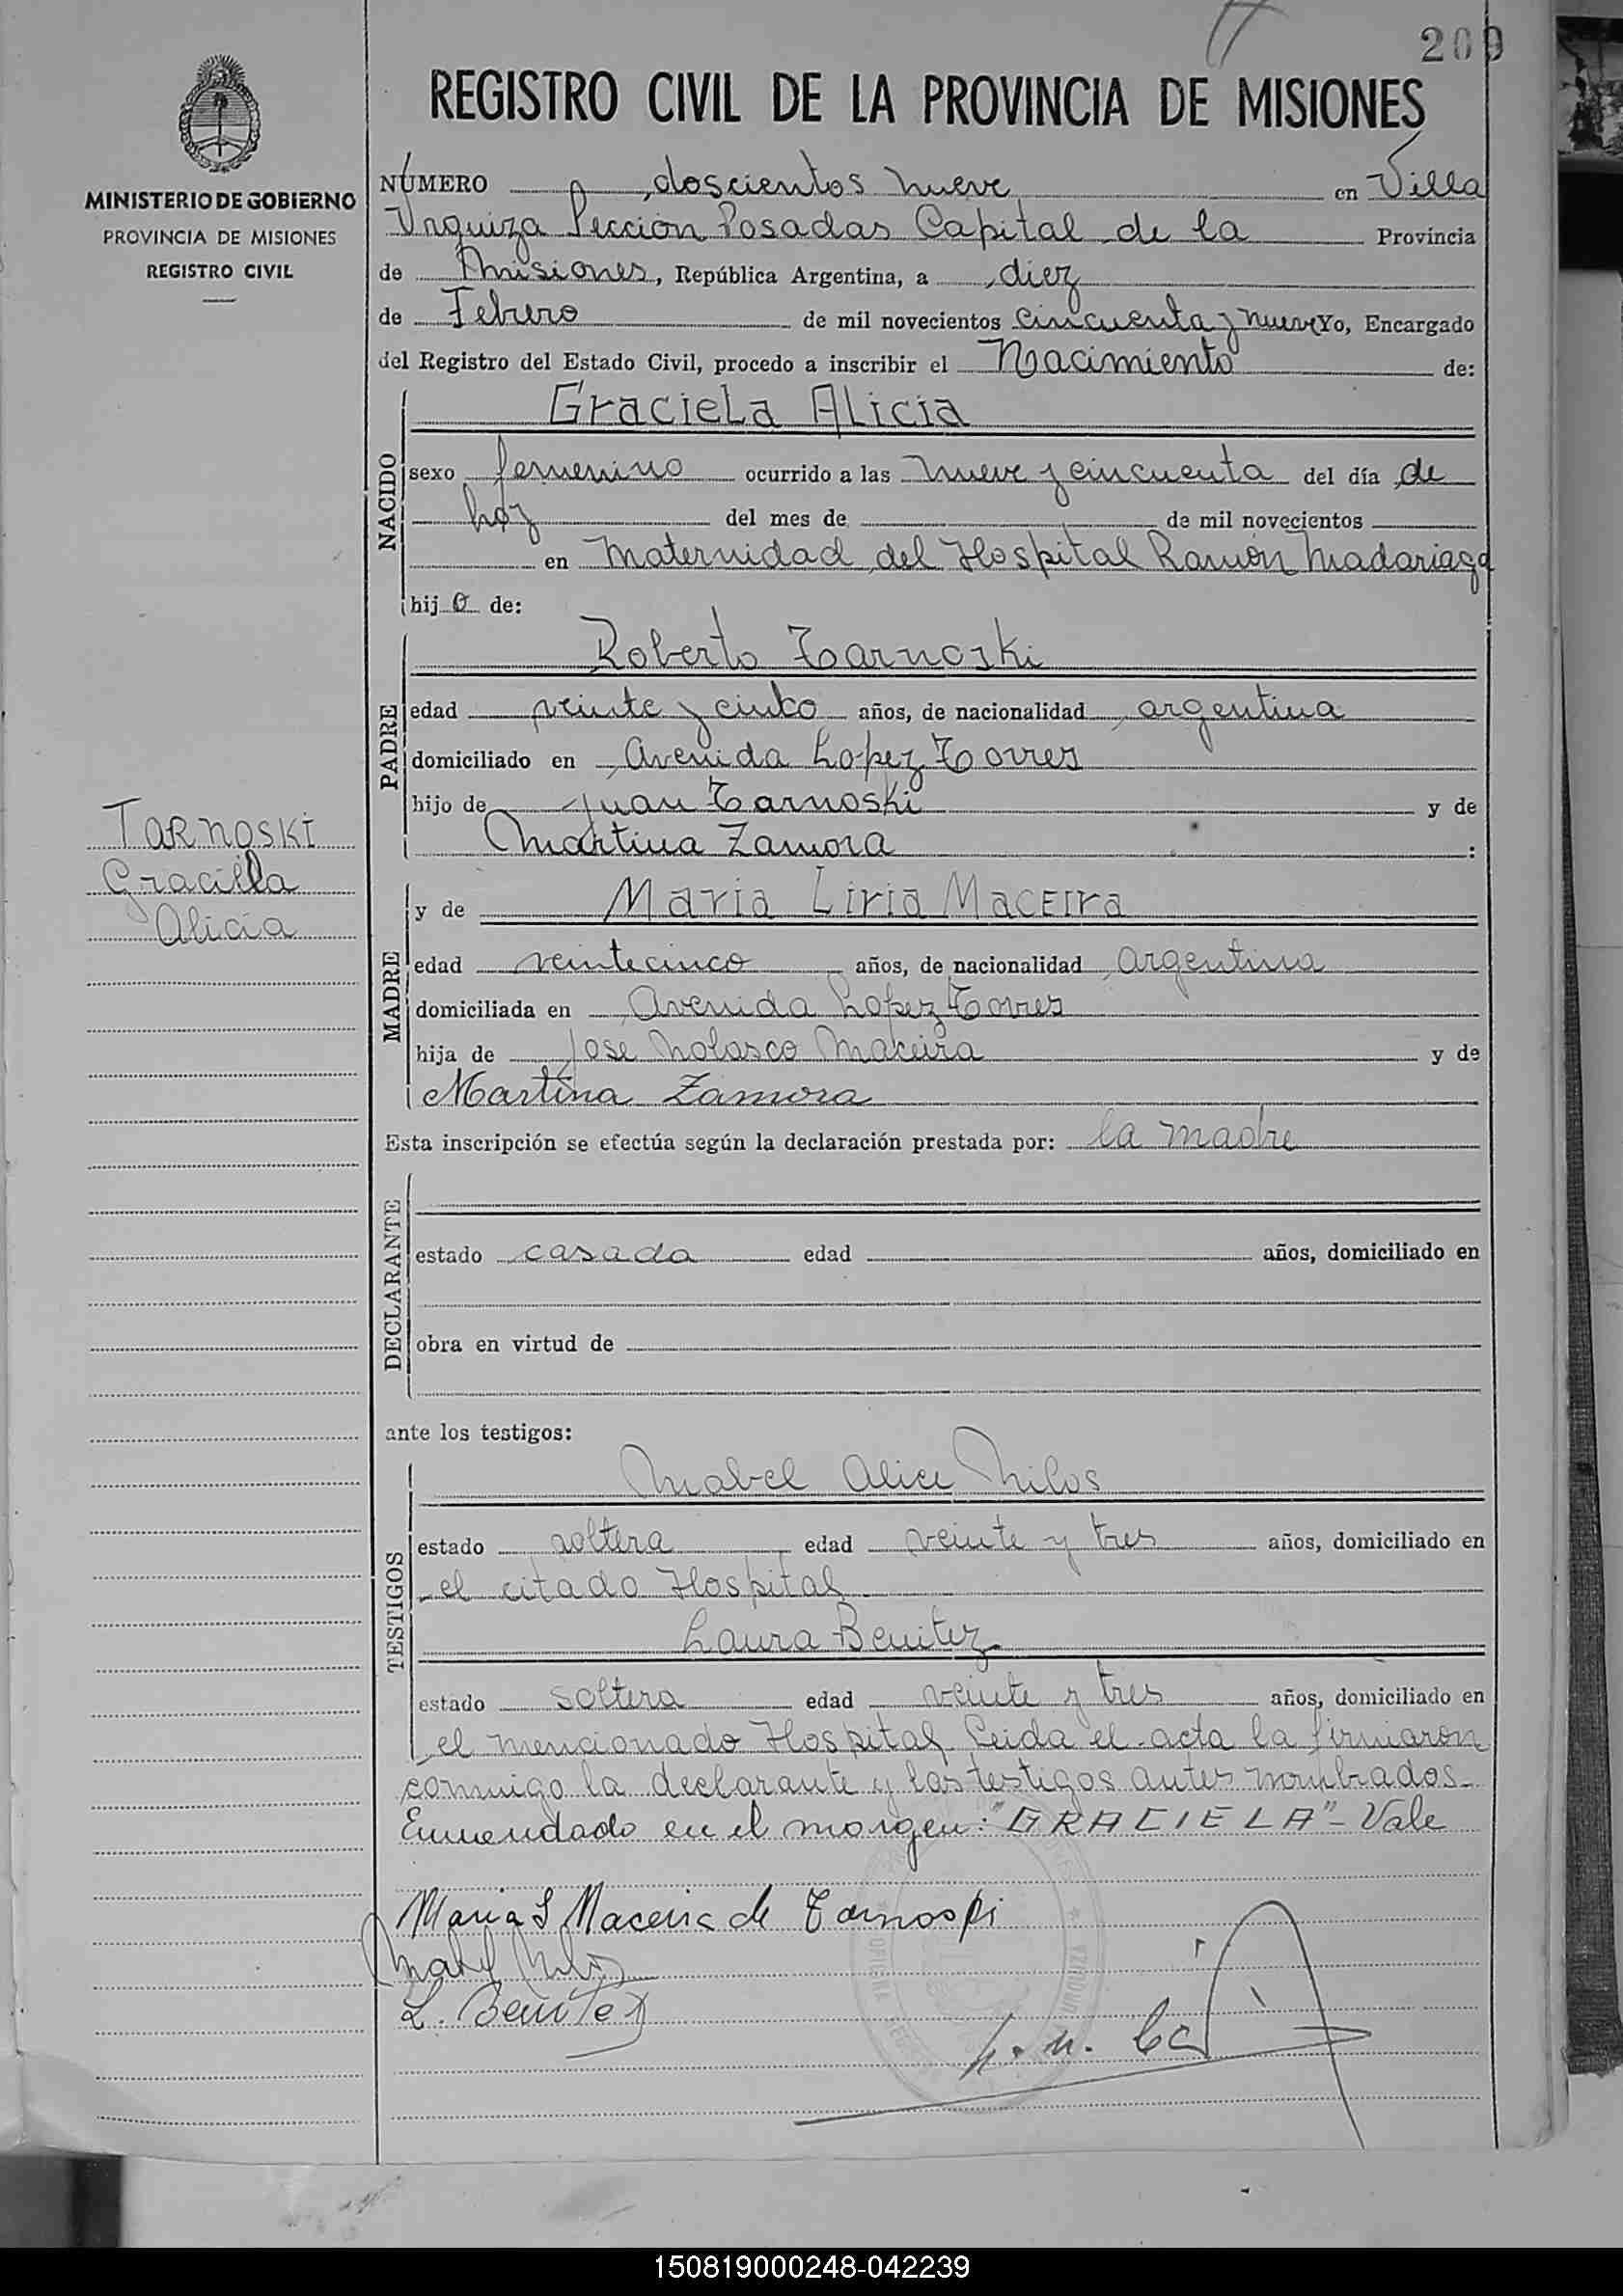 209
REGISTRO CIVIL DE LA PROVINCIA DE MISIONES
MINISTERIO DE GOBIERNO
PROVINCIA DE MISIONES
REGISTRO CIVIL
NÚMERO doscientos nueve en Villa
Urquiza Sección Posadas Capital de la Provincia
de Misiones, República Argentina, a diez
de Febrero de mil novecientos cincuenta y nueve Yo, Encargado
del Registro del Estado Civil, procedo a inscribir el Nacimiento de:
NACIDO
Graciela Alicia
sexo femenino ocurrido a las nueve y cincuenta del día de
hoy del mes de de mil novecientos
en Maternidad del Hospital Ramón Madariaga
hij o de:
PADRE
Roberto Tarnoski
edad veinte y cinco años, de nacionalidad argentina
domiciliado en Avenida Lopez Torres
hijo de Juan Tarnoski y de
Martina Zamora :
TARNOSKI
Graciela
Alicia
MADRE
y de Maria Liria Maceira
edad veintecinco años, de nacionalidad Argentina
domiciliada en Avenida Lopez Torres
hija de Jose Nolasco Maceira y de
Martina Zamora
Esta inscripción se efectúa según la declaración prestada por: la madre
DECLARANTE
estado casada edad años, domiciliado en
obra en virtud de
ante los testigos:
TESTIGOS
Mabel Alice Milos
estado soltera edad veinte y tres años, domiciliado en
el citado Hospital
Laura Benitez
estado soltera edad veinte y tres años, domiciliado en
el mencionado Hospital Leida el acta la firmaron
conmigo la declarante y los testigos antes nombrados.
Enmendado en el margen: "GRACIELA" - Vale
Maria L Maceira de Tarnoski
Mabel Milos
L. Benitez
150819000248-042239